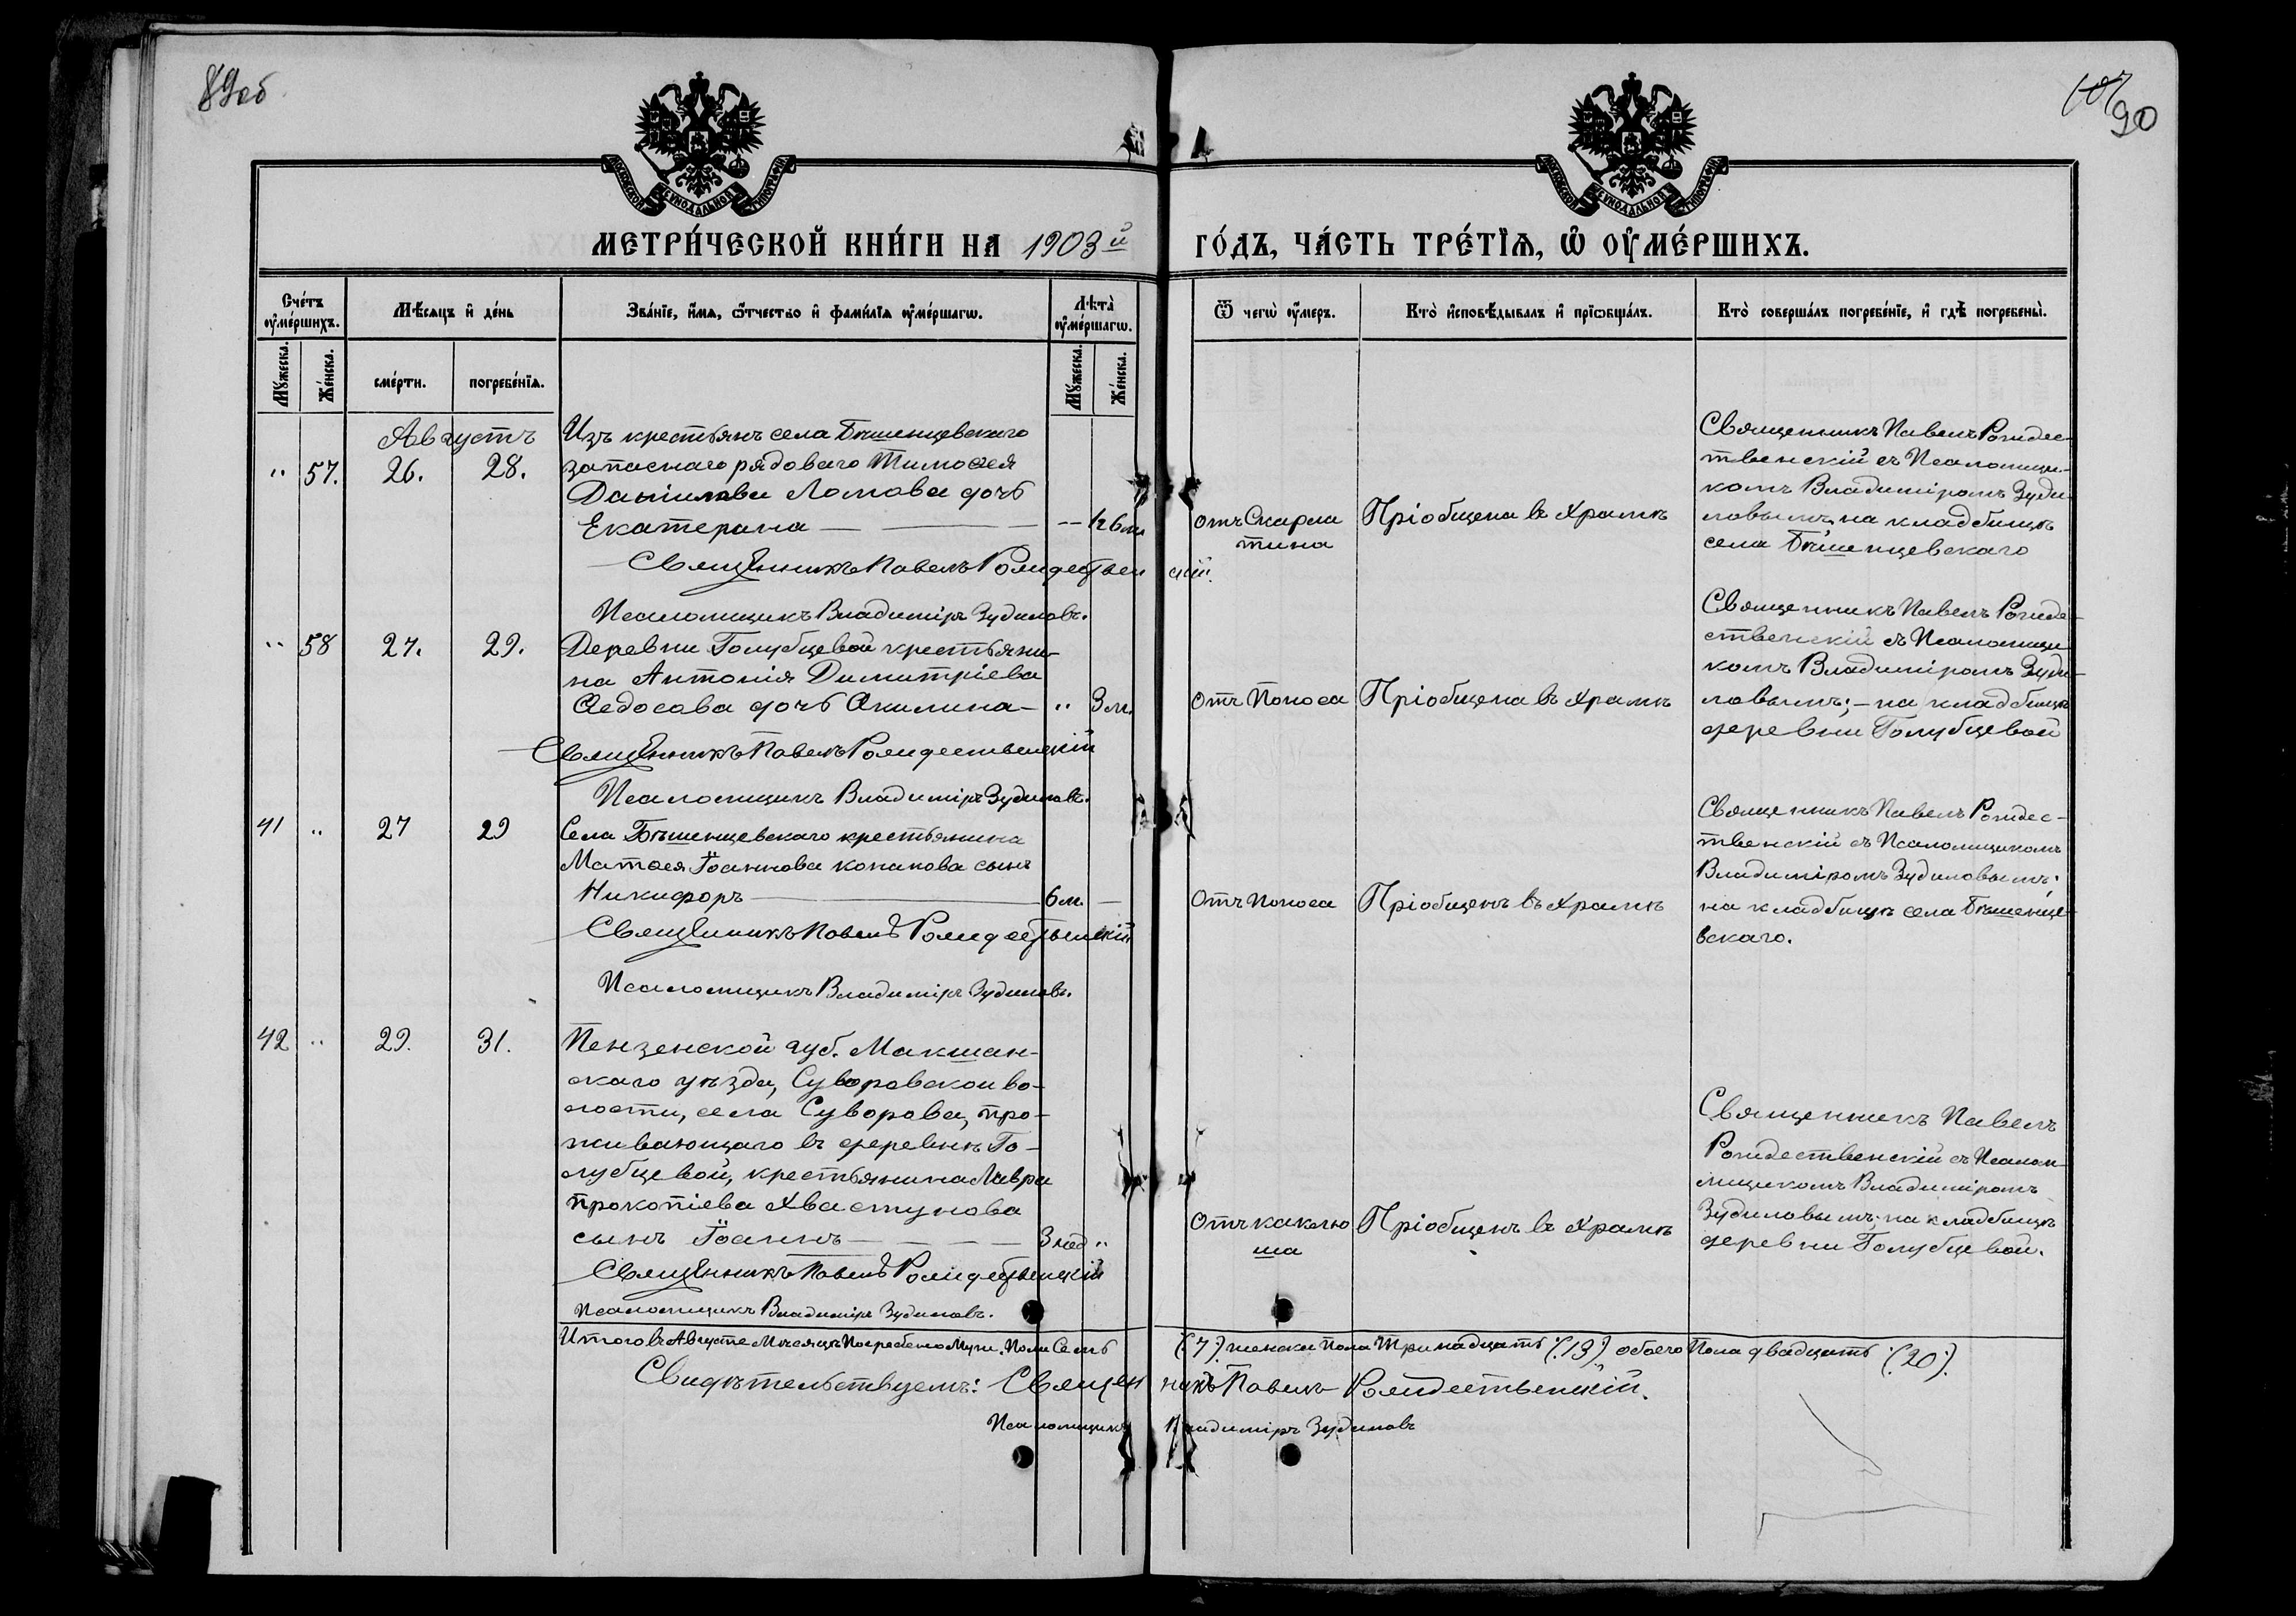 89об
107
90
МОСКОВСКОЙ СѴНОДАЛЬНОЙ ТИПОГРАФІИ
МОСКОВСКОЙ СѴНОДАЛЬНОЙ ТИПОГРАФІИ
МЕТРИ́ЧЕСКОЙ КНИ́ГИ НА 1903й
ГО́ДЪ, ЧА́СТЬ ТРЕ́ТЇѦ, Ѡ҆ ОУ҆МЕ́РШИХЪ.
Сче́тъ оу҆ме́ршихъ.
Мѣ́сяцъ и҆ де́нь
Зва́нїе, и҆́мѧ, ѻ҆́тчество и҆ фами́лїѧ оу҆ме́ршагѡ.
Лѣта̀ оу҆ме́ршагѡ.
Ѿ чегѡ̀ оу҆́меръ.
Кто̀ и҆сповѣ́дывалъ и҆ прїѡбща́лъ.
Кто̀ соверша́лъ погребе́нїе, и҆ гдѣ̀ погребены̀.
Мꙋ́жеска.
Же́нска.
сме́рти.
погребе́нїѧ.
Мꙋ́жеска.
Же́нска.
Августъ
" 57. 26. 28.
Изъ крестьянъ села Бѣшенцевскаго
запаснаго рядоваго Тимоѳея
Даніилова Ломова дочь
Екатерина — 6 м
Священникъ Павелъ Рождественскій.
Псаломщикъ Владиміръ Зудиловъ.
отъ Скарла
тина
Пріобщена въ Храмѣ
Священникъ Павелъ Рождес-
твенскій съ Псаломщи-
комъ Владиміромъ Зуди
ловымъ, на кладбищѣ
села Бѣшенцевскаго
" 58 27. 29.
Деревни Голубцевой крестьяни-
на Антонія Димитріева
Ѳедосова дочь Акилина — " 3 м.
Священникъ Павелъ Рождественскій
Псаломщикъ Владиміръ Зудиловъ.
Отъ Поноса
Пріобщена въ Храмѣ
Священникъ Павелъ Рожде-
ственскій съ Псаломщи
комъ Владиміромъ Зуди-
ловымъ; – на кладбищѣ
деревни Голубцевой
41 " 27 29
Села Бѣшенцевскаго крестьянина
Матѳея Іоаннова Конакова сынъ
Никифоръ — 6 м. —
Священникъ Павелъ Рождественскій
Псаломщикъ Владиміръ Зудиловъ.
Отъ Поноса
Пріобщенъ въ Храмѣ
Священникъ Павелъ Рождес-
твенскій съ Псаломщикомъ
Владиміромъ Зудиловымъ;
на кладбищѣ села Бѣшенце-
вскаго.
42 " 29. 31.
Пензенской губ. Макшан-
скаго уѣзда, Суворовской во-
лости, села Суворова, про-
живающаго въ деревнѣ Го-
лубцевой, крестьянина Лавра
Прокопіева Хвастунова
сынъ Іоаннъ — 3 нед "
Священникъ Павелъ Рождественскій
Псаломщикъ Владиміръ Зудиловъ.
Отъ каклю
ша
Пріобщенъ въ Храмѣ
Священникъ Павелъ
Рождественскій съ Псалом-
щикомъ Владиміромъ
Зудиловымъ, на кладбищѣ
деревни Голубцевой.
Итого въ Августе Мѣсяцѣ Погребено Муж. Пола Семь (7) женска Пола Тринадцать (13) обоего Пола двадцать (20).
Свидѣтельствуемъ: Священникъ Павелъ Рождественскій.
Псаломщикъ Владиміръ Зудиловъ